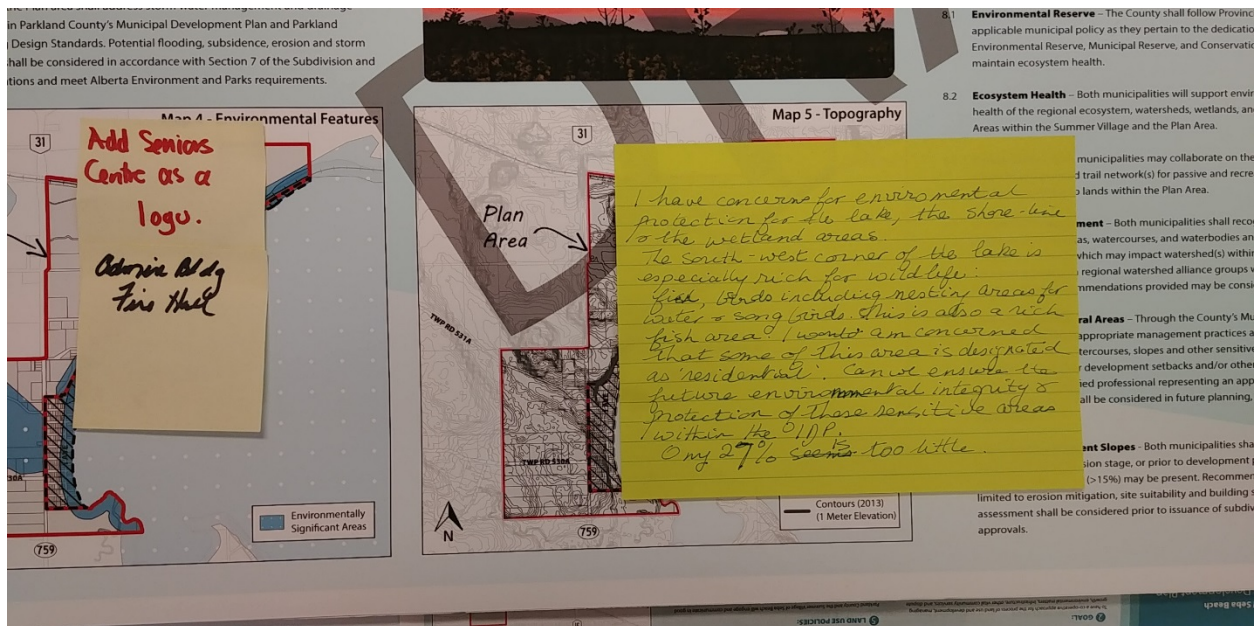 in Parkland County's Municipal Development Plan and Parkland
Design Standards. Potential flooding, subsidence, erosion and storm
hall be considered in accordance with Section 7 of the Subdivision and
tions and meet Alberta Environment and Parks requirements.
Map 4 - Environmental Features
31
Add Seniors
Centre as a
logo.
Admin Bldg
Fire Hall
Environmentally
Significant Areas
759
Map 5 - Topography
31
Plan
Area
TWP RD 531A
TWP RD 530A
N
759
Contours (2013)
(1 Meter Elevation)
I have concerns for enviromental
protection for the lake, the shore-line
& the wetland areas.
The south-west corner of the lake is
especially rich for wildlife:
fish, birds including nesting areas for
water & song birds. This is also a rich
fish area. I would am concerned
that some of this area is designated
as 'residential'. Can we ensure the
future environmental integrity &
protection of these sensitive areas
within the IDP.
Ony 27% seems is too little.
8.1 Environmental Reserve – The County shall follow Provinc
applicable municipal policy as they pertain to the dedicatio
Environmental Reserve, Municipal Reserve, and Conservatio
maintain ecosystem health.
8.2 Ecosystem Health – Both municipalities will support envir
health of the regional ecosystem, watersheds, wetlands, an
Areas within the Summer Village and the Plan Area.
municipalities may collaborate on the
d trail network(s) for passive and recre
lands within the Plan Area.
ment – Both municipalities shall reco
as, watercourses, and waterbodies an
which may impact watershed(s) within
regional watershed alliance groups
mmendations provided may be consi
ral Areas – Through the County's Mu
appropriate management practices a
tercourses, slopes and other sensitive
r development setbacks and/or other
ed professional representing an app
all be considered in future planning,
ent Slopes - Both municipalities sha
sion stage, or prior to development
(>15%) may be present. Recommen
limited to erosion mitigation, site suitability and building s
assessment shall be considered prior to issuance of subdiv
approvals.
LAND USE POLICIES:
GOAL:
Seba Beach